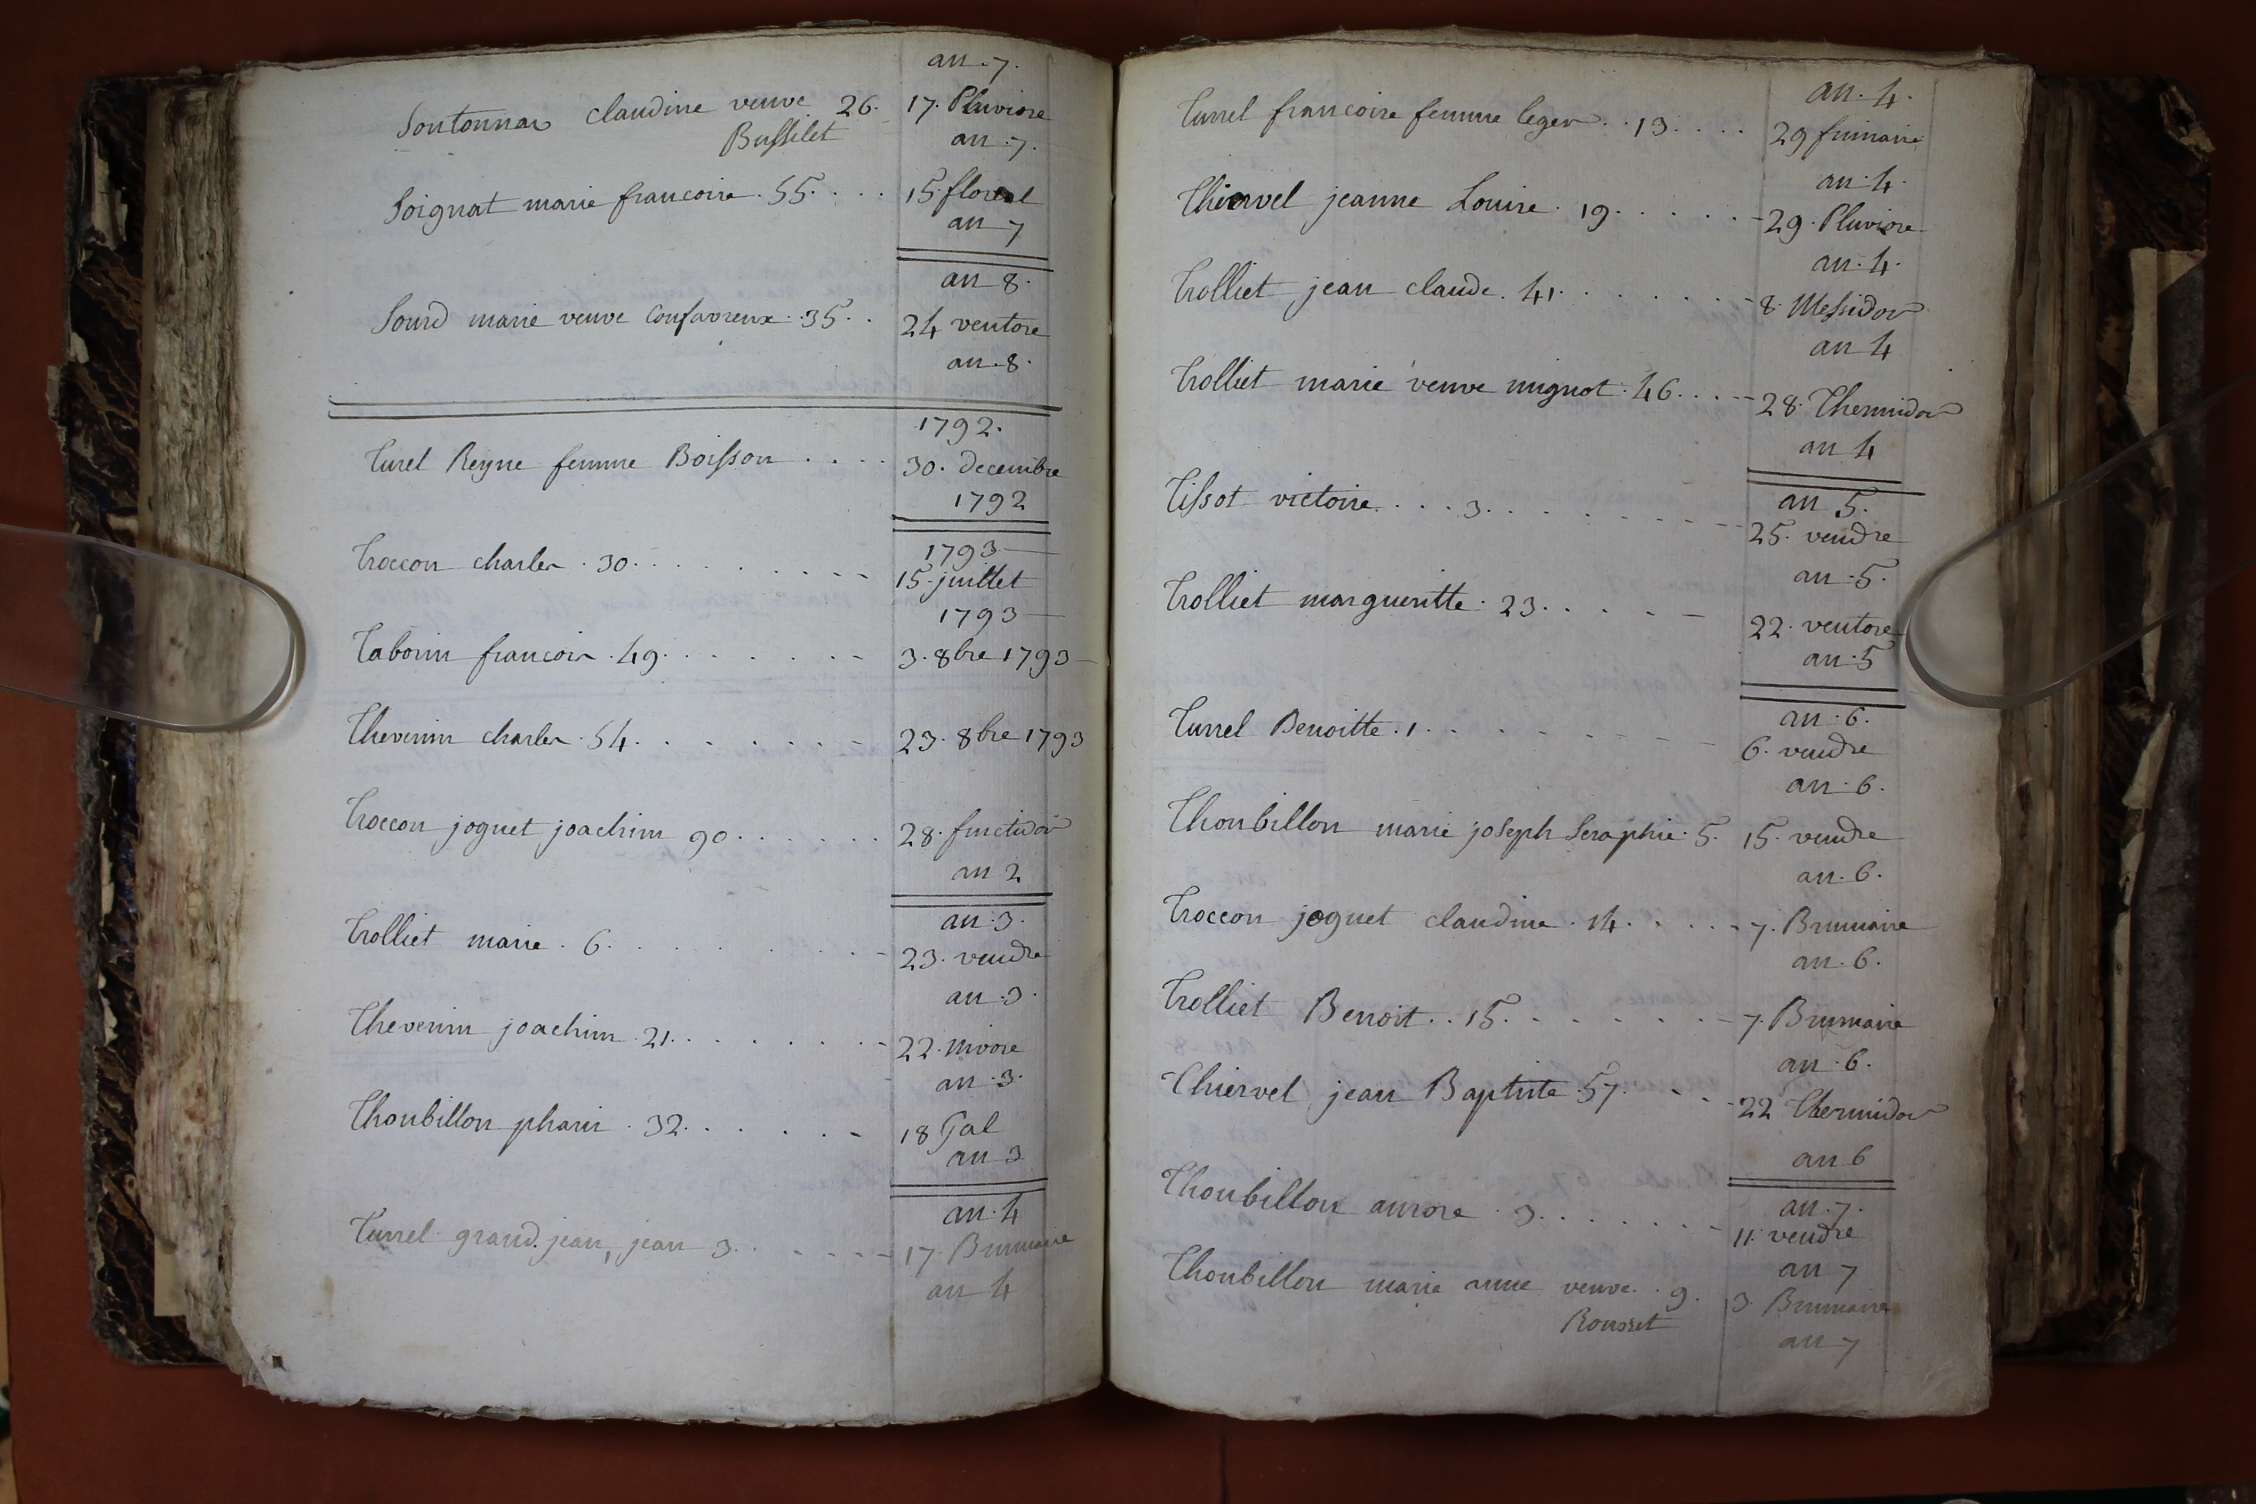 an .7.
Soutonnas claudine veuve 26. 17. Pluviose
Bussilet an .7.
Soignat marie francoise . 55. . . 15 floreal
an 7
an 8.
Sourd marie veuve Confavreux . 35. . 24 ventose
an .8.
1792.
Turel Reyne femme Boisson . . . . 30. decembre
1792
1793
Troccon charles . 30. . . . . . . . . 15. juillet
1793
Tabouin francois . 49. . . . . . . 3. 8bre 1793
Thevenin charles . 54. . . . . . . . 23. 8bre 1793
Troccon joguet joachim 90. . . . . . 28. fructidor
an 2
an .3.
Trolliet marie . 6. . . . . . . . 23. vendre
an .3.
Thevenin joachim . 21. . . . . . . . 22. nivose
an .3.
Thoubillon pharin . 32. . . . . . 18 Gal
an 3
an . 4
Turrel grand. jean, jean 3. . . . . . 17. Brumaire
an 4
an . 4.
Turrel francoise femme leger . . 13. . . . 29 frimaire
an . 4.
Thiervel jeanne Louise . 19. . . . . . 29. Pluviose
an . 4.
Trolliet jean claude . 41. . . . . . . 8. Messidor
an 4
Trolliet marie veuve mignot . 46. . . . 28. Thermidor
an 4
an 5.
Tissot victoire. . . . 3. . . . . . . . . 25. vendre
an . 5.
Trolliet margueritte . 23. . . . . 22. ventose
an . 5
an . 6.
Turrel Benoitte . 1. . . . . . . . . 6. vendre
an . 6.
Thoubillon marie joseph Seraphie . 5. 15. vendre
an . 6.
Troccon joguet claudine . 14. . . . . 7. Brumaire
an . 6.
Trolliet Benoit . . 15. . . . . . . . 7. Brumaire
an . 6.
Thiervel jean Baptiste 57. . . . 22 Thermidor
an 6
an . 7.
Thoubillon aurore . 3. . . . . . . 11. vendre
an 7
Thoubillon marie anne veuve . . 9. 3. Brumaire
Rousset an 7